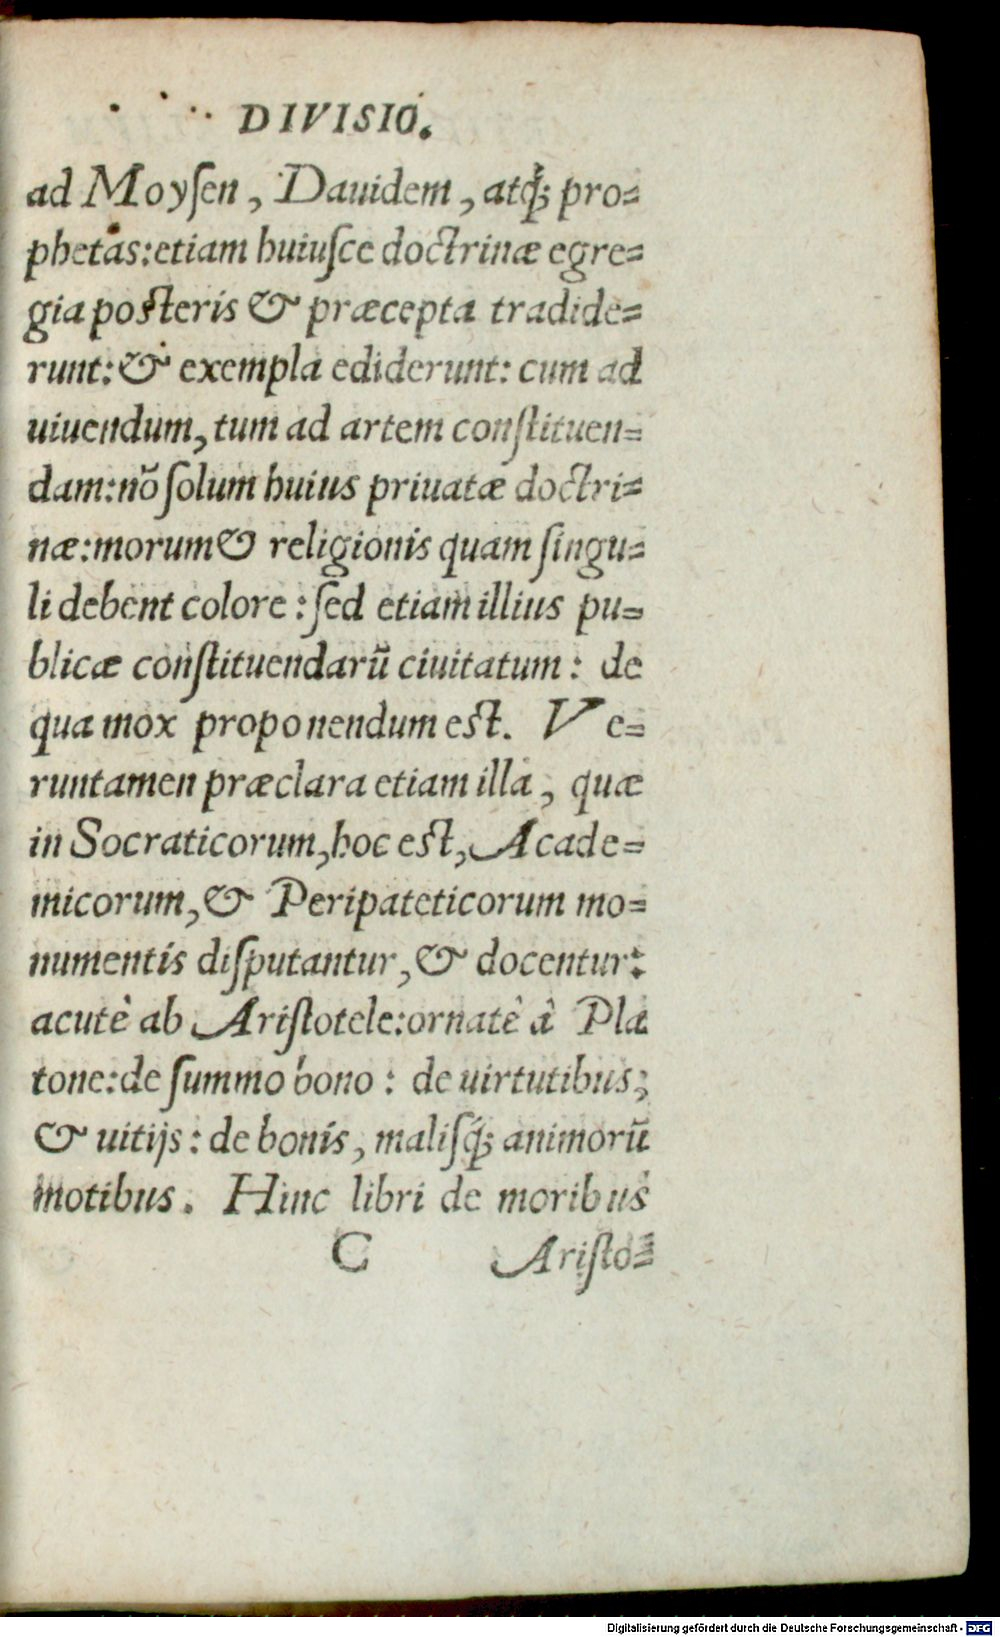 DIVISIO.
ad Moyſen, Dauidem, atq́; pro=
phetas: etiam huiuſce doctrinæ egre=
gia poſteris & præcepta tradide=
runt: & exempla ediderunt: cum ad
uiuendum, tum ad artem conſtituen=
dam: nõ ſolum huius priuatæ doctri=
næ: morum & religionis quam ſingu=
li debent colore: ſed etiam illius pu=
blicæ conſtituendarũ ciuitatum: de
qua mox proponendum eſt. Ve=
runtamen præclara etiam illa, quæ
in Socraticorum, hoc eſt, Acade=
micorum, & Peripateticorum mo=
numentis diſputantur, & docentur:
acutè ab Ariſtotele: ornatè à Pla
tone: de ſummo bono: de uirtutibus,
& uitijs: de bonis, maliſq́; animorũ
motibus. Hinc libri de moribus
C Ariſto=
Digitalisierung gefördert durch die Deutsche Forschungsgemeinschaft - DFG